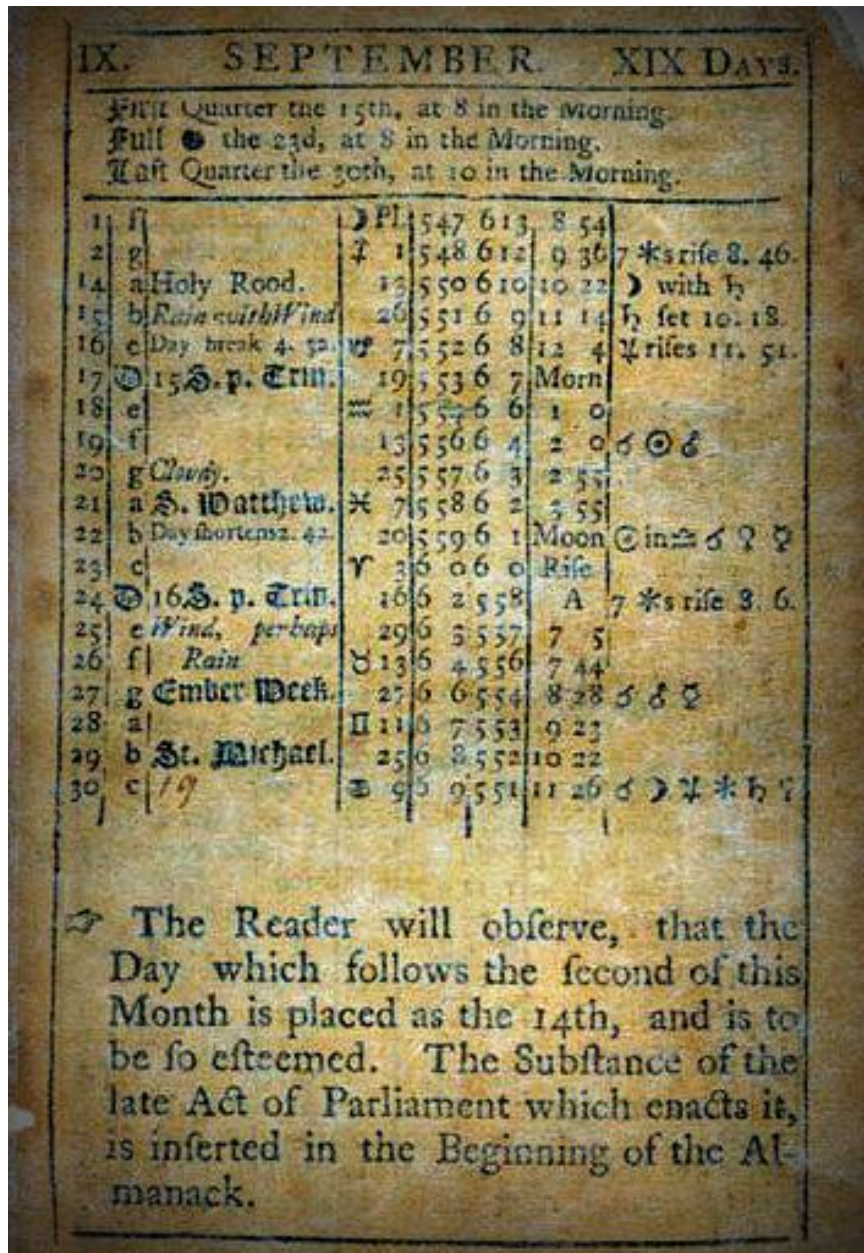 IX. SEPTEMBER. XIX DAYS.
Firſt Quarter the 15th, at 8 in the Morning.
Full ● the 23d, at 8 in the Morning.
Laſt Quarter the 30th, at 10 in the Morning.
1 f ☽ Pl. 5 47 6 13 8 54
2 g 1 5 48 6 12 9 36 7 *s riſe 8. 46.
14 a Holy Rood. 13 5 50 6 10 10 22 ☽ with ♄
15 b Rain with Wind 26 5 51 6 9 11 14 ♄ ſet 10. 18.
16 c Day break 4. 52. ♑ 7 5 52 6 8 12 4 ♃ riſes 11. 51.
17 D 15 S. p. Trin. 19 5 53 6 7 Morn
18 e ♒ 1 5 54 6 6 1 0
19 f 13 5 56 6 4 2 0 ☌ ☉ ♂
20 g Cloudy. 25 5 57 6 3 2 55
21 a S. Matthew. ♓ 7 5 58 6 2 3 55
22 b Day ſhortens 2. 42. 20 5 59 6 1 Moon ☉ in ♎ ☌ ♀ ☿
23 c ♈ 3 6 0 6 0 Riſe
24 D 16 S. p. Trin. 16 6 2 5 58 A 7 *s riſe 8. 6.
25 e Wind, perhaps 29 6 3 5 57 7 5
26 f Rain ♉ 13 6 4 5 56 7 44
27 g Ember Week. 27 6 6 5 54 8 28 ☌ ♂ ☿
28 a ♊ 11 6 7 5 53 9 23
29 b St. Michael. 25 6 8 5 52 10 22
30 c 19 ♋ 9 6 9 5 51 11 26 ☌ ☽ ♃ * ♄
☞ The Reader will obſerve, that the
Day which follows the ſecond of this
Month is placed as the 14th, and is to
be ſo eſteemed. The Subſtance of the
late Act of Parliament which enacts it,
is inſerted in the Beginning of the Al-
manack.